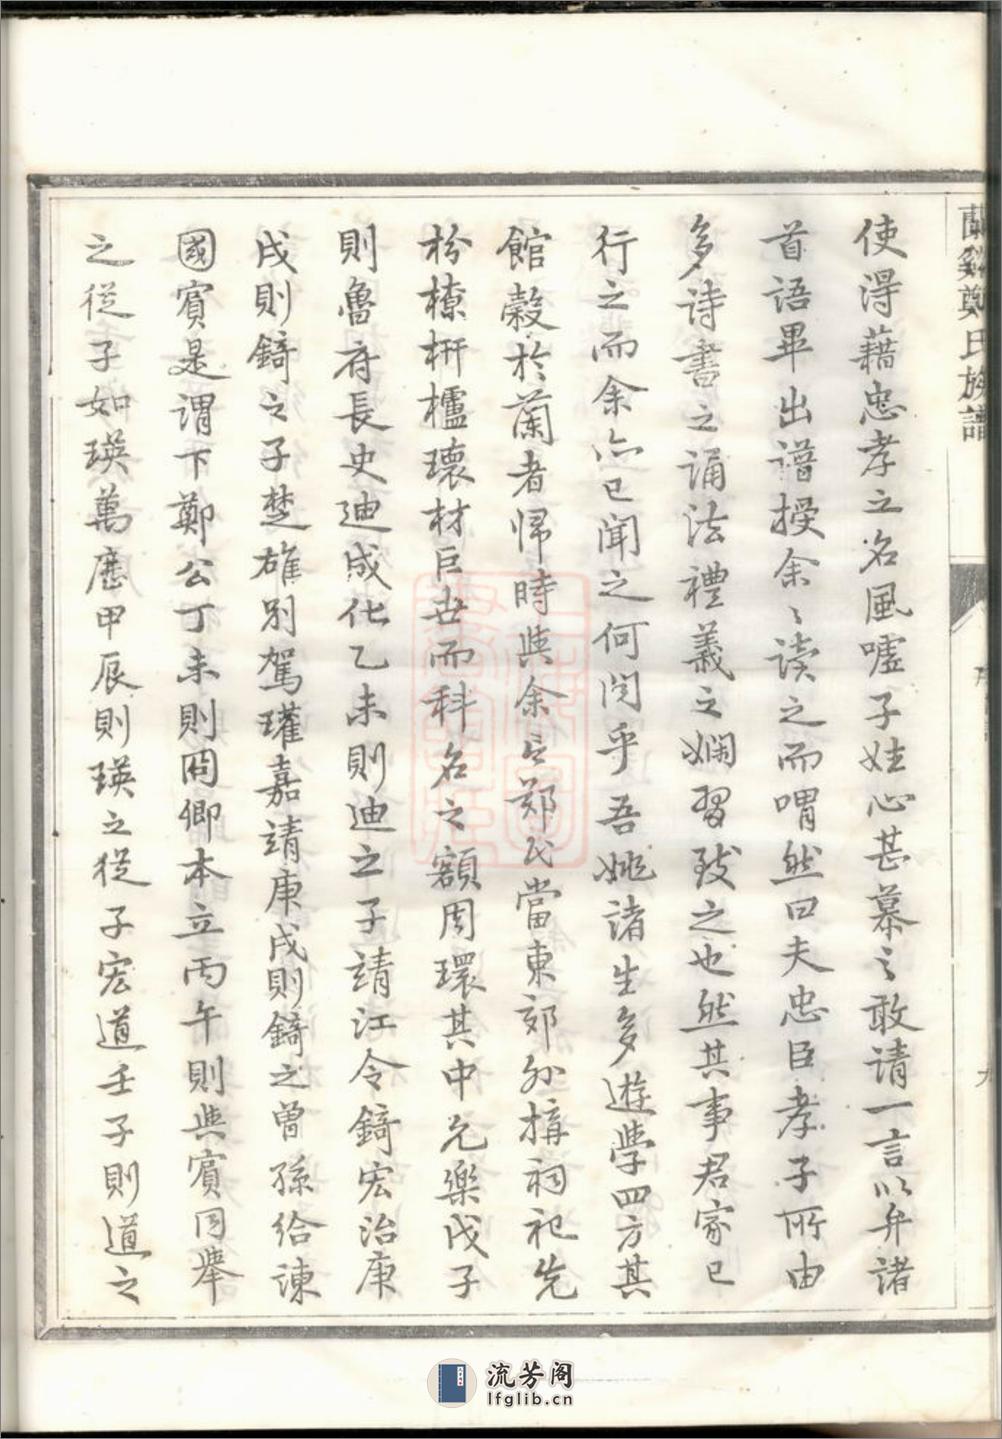 蘭谿鄭氏族譜
使淂藉忠孝之名風嘘子姓心甚慕之敢请一言以弁諸
首語畢出譜授余〻读之而喟然曰夫忠臣孝子所由
多詩書之誦法禮義之嫻習致之也然其事君家已
行之而余亦已聞之何問乎吾姚諸生多遊学四方其
館穀於蘭者帰時與余言郑氏當東郊外搆祠祀先
枌橑枅櫨瓌材巨丗而科名之額周環其中允樂戊子
則魯府長史迪成化乙未則迪之子靖江令錡宏治庚
戌則錡之子楚雄别駕瓘嘉靖庚戌則錡之曾孫給諫
國賓是謂下鄭公丁未則冏卿本立丙午則與賓同舉
之從子如瑛萬厯甲辰則瑛之從子宏道壬子則道之
九
流芳阁
lfglib.cn